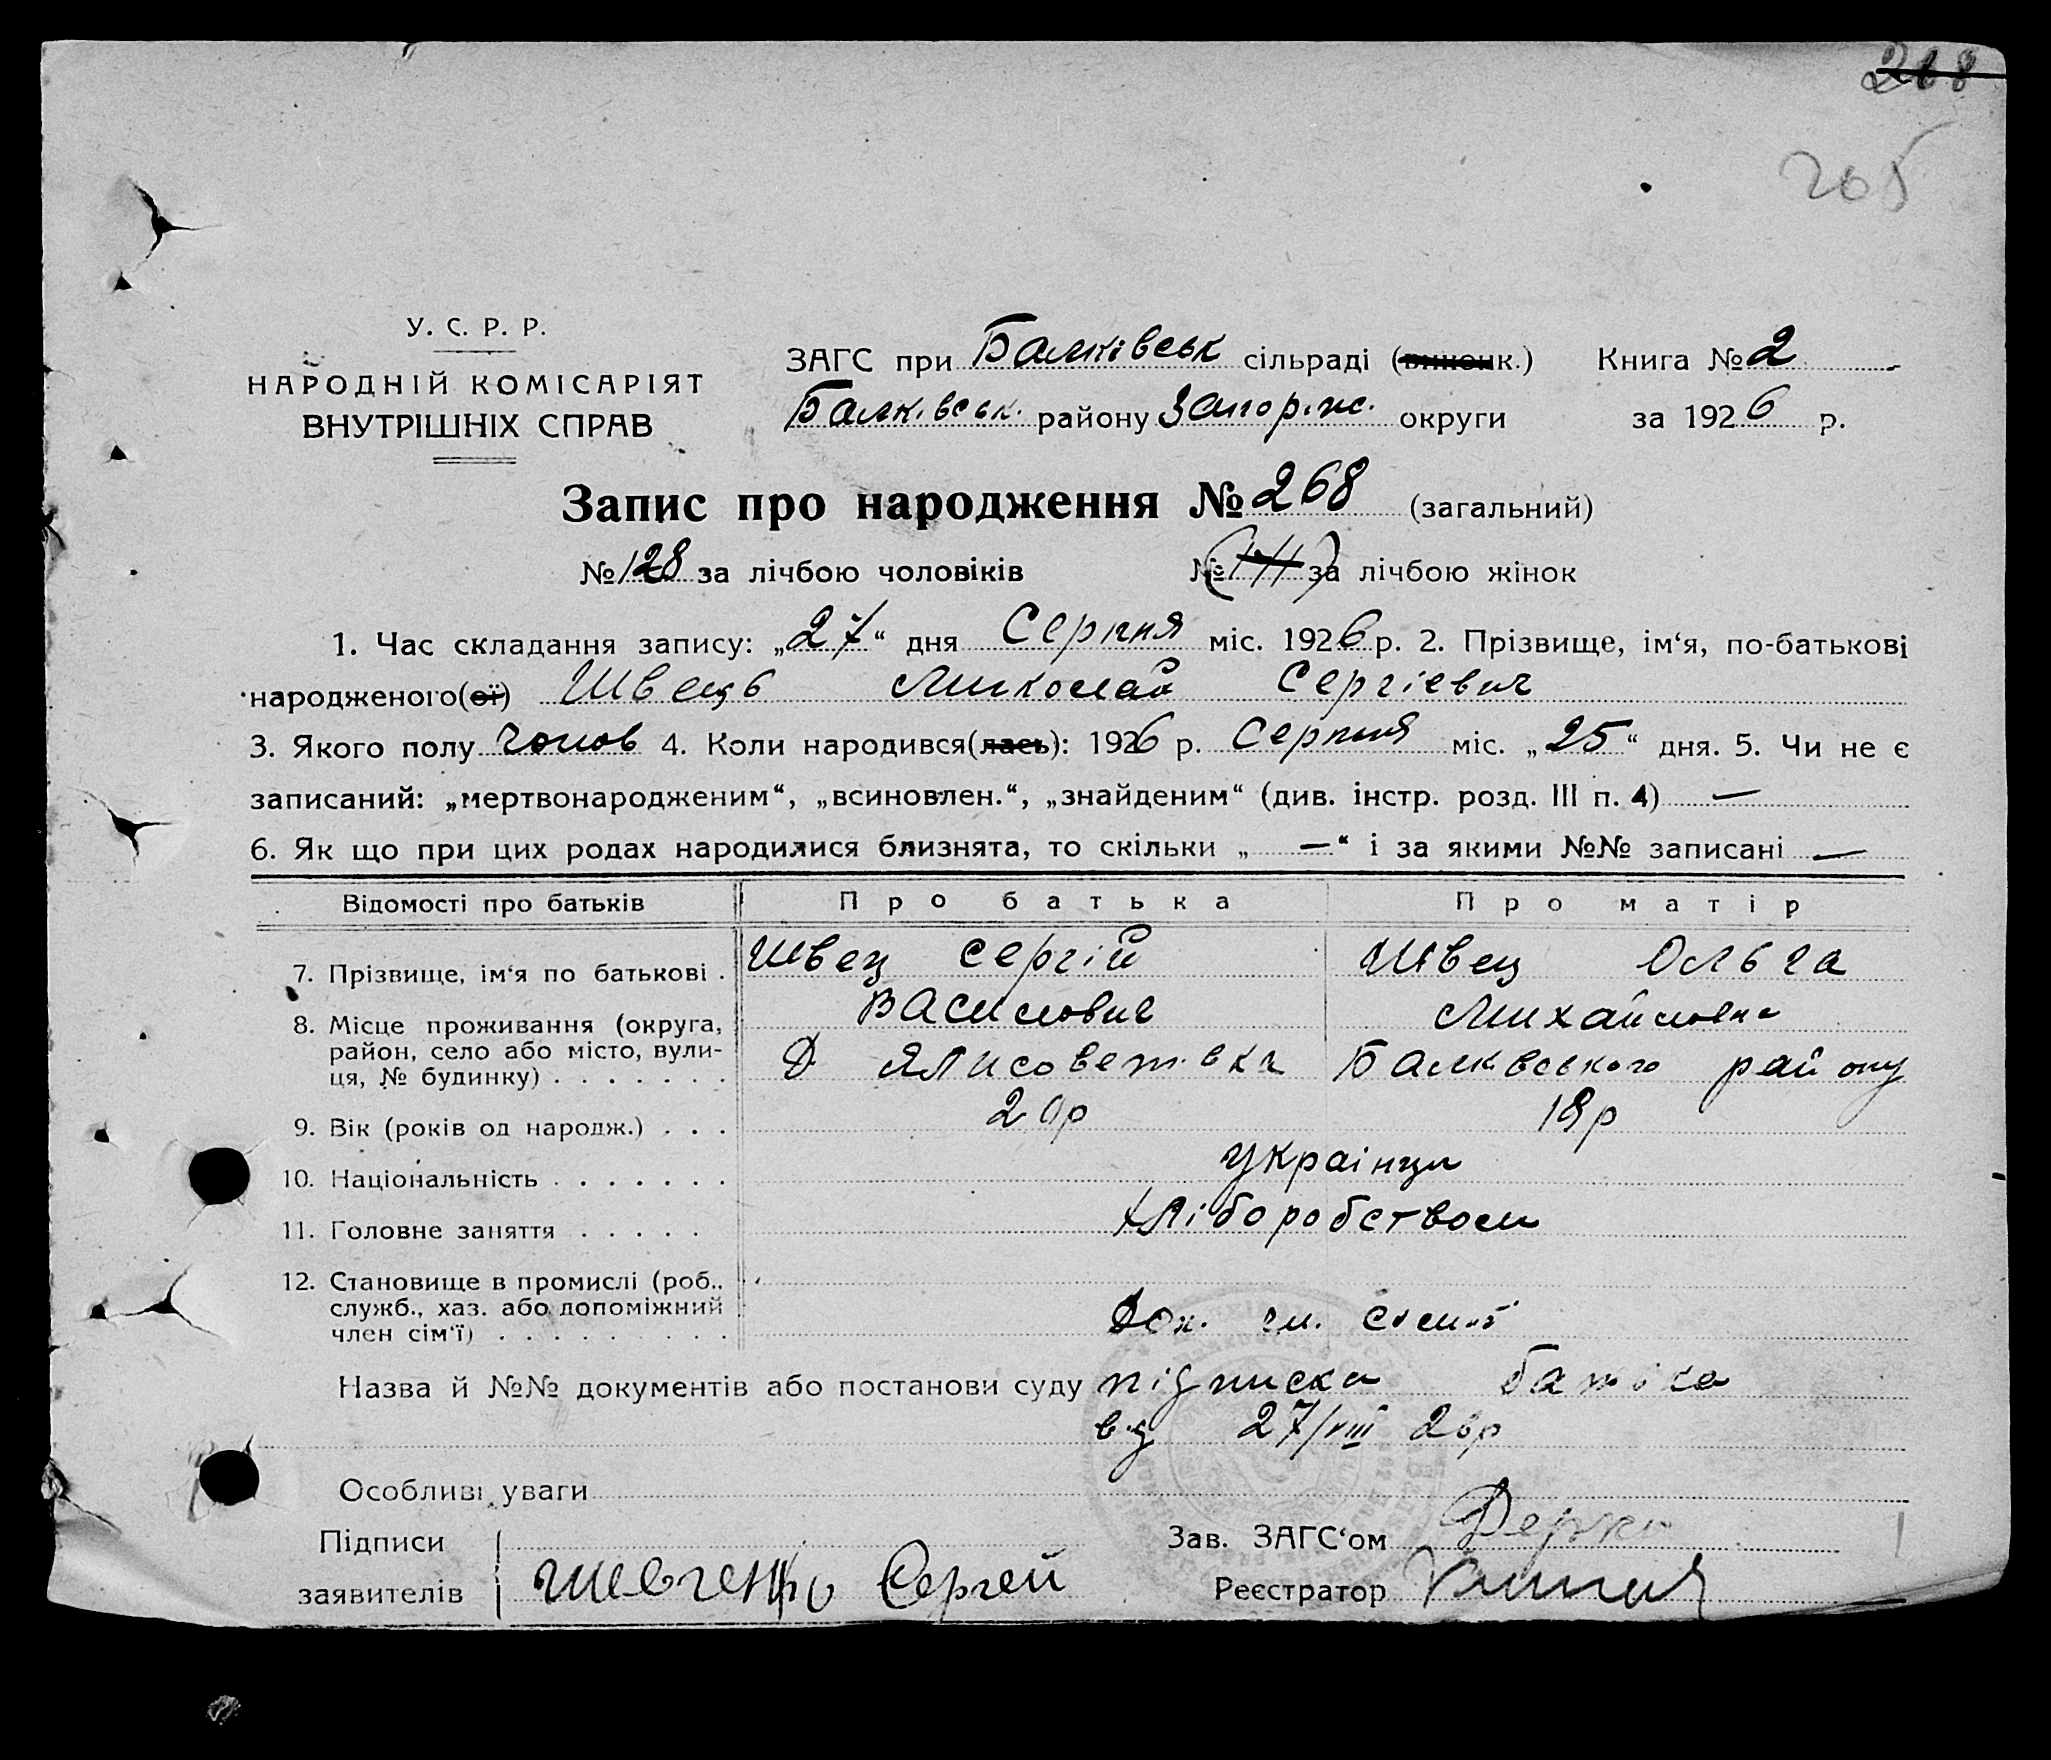 268
265
У. С. Р. Р.
НАРОДНІЙ КОМІСАРІЯТ
ВНУТРІШНІХ СПРАВ
ЗАГС при Балківськ сільраді (виконк.) Книга № 2
Балківськ. району Запоріж. округи за 1926 р.
Запис про народження № 268 (загальний)
№ 128 за лічбою чоловіків № за лічбою жінок
1. Час складання запису: „27“ дня Серпня міс. 1926 р. 2. Прізвище, ім‘я, по-батькові
народженого(ої) Швець Миколай Сергієвич
3. Якого полу чолов 4. Коли народився(лась): 1926 р. Серпня міс. „25“ дня. 5. Чи не є
записаний: „мертвонародженим“, „всиновлен.“, „знайденим“ (див. інстр. розд. III п. 4) —
6. Як що при цих родах народилися близнята, то скільки „ — “ і за якими №№ записані —
Відомості про батьків Про батька Про матір
7. Прізвище, ім‘я по батькові . Швец Сергій Швец Ольга
Василович Михайловна
8. Місце проживання (округа,
район, село або місто, вули-
ця, № будинку) . . . . . . . Д Ялисоветівка Балківського району
9. Вік (років од народж.) . . . 20р 19р
10. Національність . . . . . . . українци
11. Головне заняття . . . . . Хліборобством
12. Становище в промислі (роб.,
служб., хаз. або допоміжний
член сім‘ї) . . . . . . . . . Доп. чл. сімї
Назва й №№ документів або постанови суду підписка батька
від 27/VIII 26р
Особливі уваги
Підписи Зав. ЗАГС‘ом
заявителів Шевченко Сергей Реєстратор